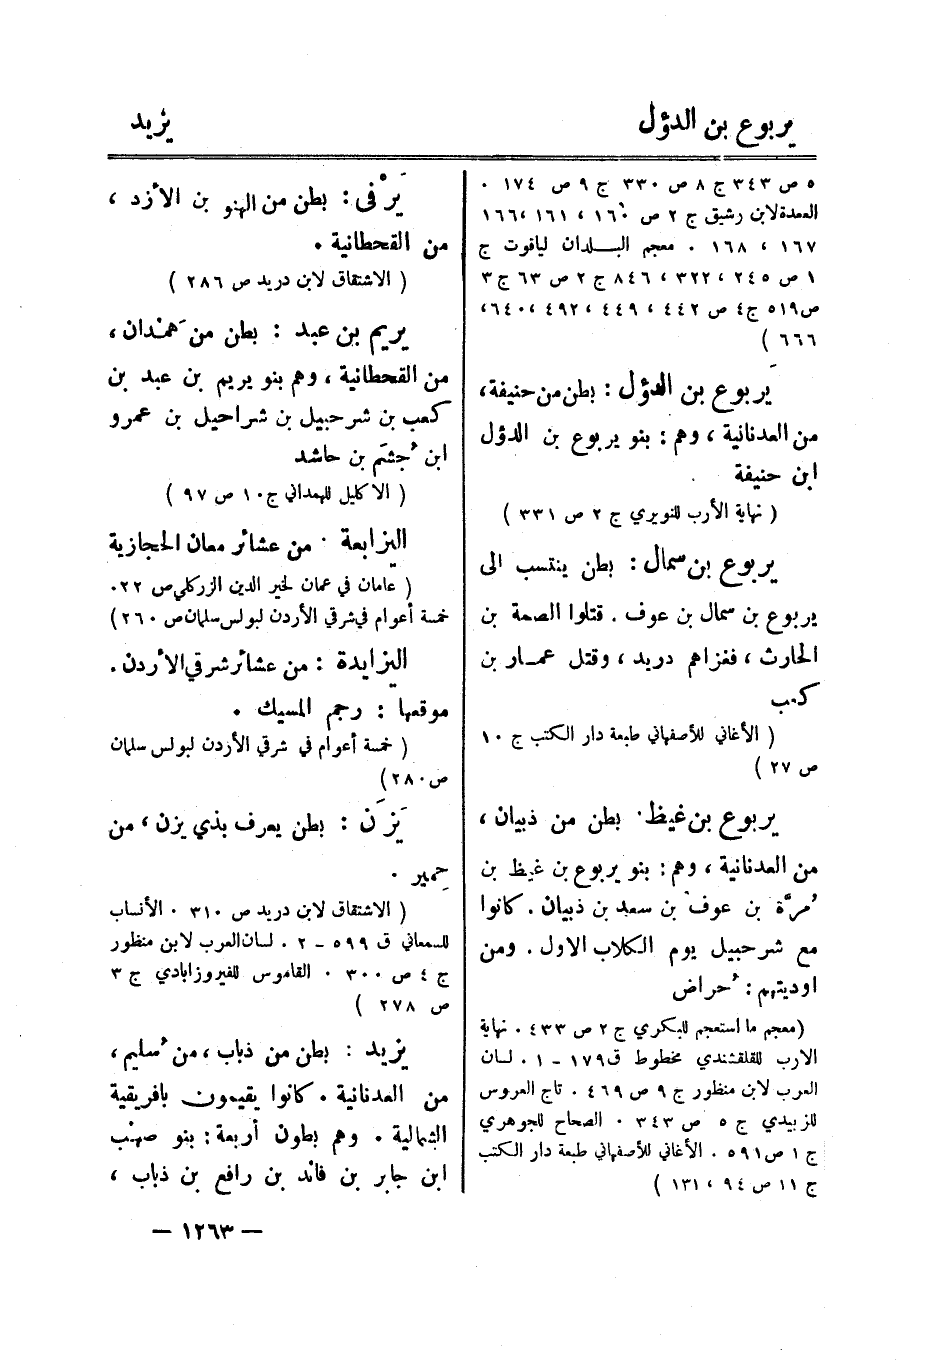 يربوع بن الدؤل
يزيد
٥ ص ٣٤٣ ج ٨ ص ٣٣٠ ج ٩ ص ١٧٤ .
العمدة لابن رشيق ج ٢ ص ١٦٠ ، ١٦١ ، ١٦٦
١٦٧ ، ١٦٨ . معجم البلدان لياقوت ج
١ ص ٢٤٥ ، ٣٢٢ ، ٨٤٦ ج ٢ ص ٦٣ ج ٣
ص ٥١٩ ج ٤ ص ٤٤٢ ، ٤٤٩ ، ٤٩٢ ، ٦٤٠ ،
٦٦٦ )
يربوع بن الدؤل : بطن من حنيفة ،
من العدنانية ، وهم : بنو يربوع بن الدؤل
ابن حنيفة .
( نهاية الأرب للنويري ج ٢ ص ٣٣١ )
يربوع بن سمال : بطن ينتسب الى
يربوع بن سمال بن عوف . قتلوا الصمة بن
الحارث ، فغزاهم دريد ، وقتل عمار بن
كعب
( الأغاني للأصفهاني طبعة دار الكتب ج ١٠
ص ٢٧ )
يربوع بن غيظ . بطن من ذبيان ،
من العدنانية ، وهم : بنو يربوع بن غيظ بن
مُرَّة بن عوف بن سعد بن ذبيان . كانوا
مع شرحبيل يوم الكلاب الاول . ومن
اوديتهم : حُراض
( معجم ما استعجم للبكري ج ٢ ص ٤٣٣ . نهاية
الارب للقلقشندي مخطوط ق ١٧٩ - ١ . لسان
العرب لابن منظور ج ٩ ص ٤٦٩ . تاج العروس
للزبيدي ج ٥ ص ٣٤٣ . الصحاح للجوهري
ج ١ ص ٥٩١ . الأغاني للأصفهاني طبعة دار الكتب
ج ١١ ص ٩٤ ، ١٣١ )
يَرْفى : بطن من الهنو بن الأزد ،
من القحطانية .
( الاشتقاق لابن دريد ص ٢٨٦ )
يريم بن عبد : بطن من هَمْدان ،
من القحطانية ، وهم بنو يريم بن عبد بن
كعب بن شرحبيل بن شراحيل بن عمرو
ابن جُشَم بن حاشد
( الاكليل للهمداني ج ١٠ ص ٩٧ )
اليزابعة . من عشائر معان الحجازية
( عامان في عمان لخير الدين الزركلي ص ٢٢ .
خمسة أعوام في شرقي الأردن لبولس سلمان ص ٢٦٠ )
اليزايدة : من عشائر شرقي الأردن .
موقعها : رجم المسيك .
( خمسة أعوام في شرقي الأردن لبولس سلمان
ص ٢٨٠ )
يَزَن : بطن يعرف بذي يزن ، من
حِمير .
( الاشتقاق لابن دريد ص ٣١٠ . الأنساب
للسمعاني ق ٥٩٩ - ٢ . لسان العرب لابن منظور
ج ٤ ص ٣٠٠ . القاموس للفيروزابادي ج ٣
ص ٢٧٨ )
يزيد : بطن من ذباب ، من سُليم ،
من العدنانية . كانوا يقيمون بافريقية
الشمالية . وهم بطون أربعة : بنو صهب
ابن جابر بن فائد بن رافع بن ذباب ،
— ١٢٦٣ —